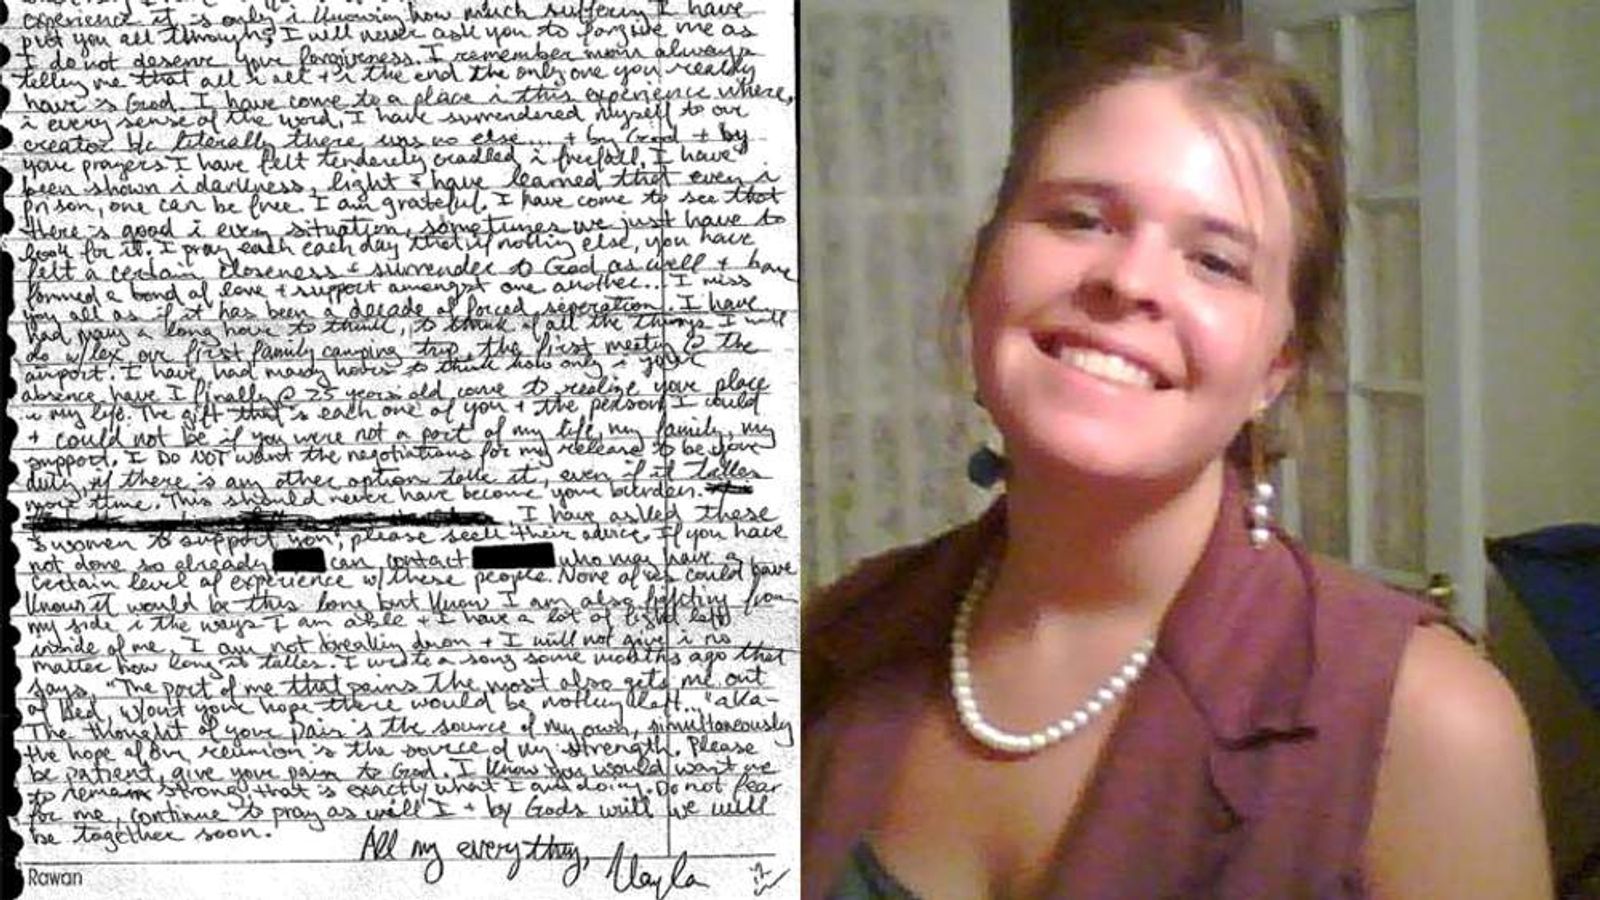 experience it is only i knowing how much suffering I have
put you all through; I will never ask you to forgive me as
I do not deserve your forgiveness. I remember mom always
telling me that all i all + i the end the only one you really
have is God. I have come to a place i this experience where,
i every sense of the word, I have surrendered myself to our
creator b/c literally there was no else.... + by God + by
your prayers I have felt tenderly cradled i freefall. I have
been shown i darkness, light + have learned that even i
prison, one can be free. I am grateful. I have come to see that
there is good i every situation, sometimes we just have to
look for it. I pray each each day that if nothing else, you have
felt a certain closeness + surrender to God as well + have
formed a bond of love + support amongst one another... I miss
you all as if it has been a decade of forced seperation. I have
had many a long hour to think, to think of all the things I will
do w/Lex, our first family camping trip, the first meeting @ the
airport. I have had many hours to think how only i your
absence have I finally @ 25 years old come to realize your place
i my life. The gift that is each one of you + the person I could
+ could not be if you were not a part of my life, my family, my
support. I DO NOT want the negotiations for my release to be your
duty, if there is any other option take it, even if it takes
more time. This should never have become your burden.
I have asked these
women to support you; please seek their advice. If you have
not done so already can contact who may have a
certain level of experience w/ these people. None of us could have
known it would be this long but know I am also fighting from
my side i the ways I am able + I have a lot of fight left
inside of me. I am not breaking down + I will not give i no
matter how long it takes. I wrote a song some months ago that
says, "The part of me that pains the most also gets me out
of bed, w/out your hope there would be nothing left..." aka-
The thought of your pain is the source of my own, simultaneously
the hope of our reunion is the source of my strength. Please
be patient, give your pain to God. I know you would want me
to remain strong that is exactly what I am doing. Do not fear
for me, continue to pray as will I + by Gods will we will
be together soon.
All my everything,
Kayla
Rawan